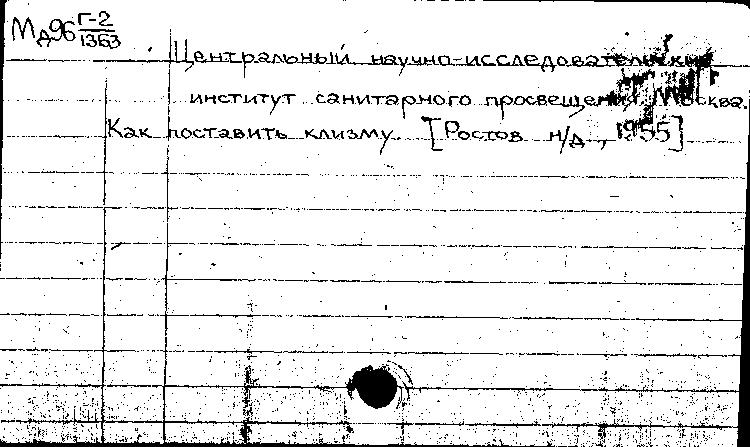 Мд96 Г-2
1363
Центральный научно-исследовательский
институт санитарного просвещения, Москва.
Как поставить клизму. [Ростов н/д, 1955]